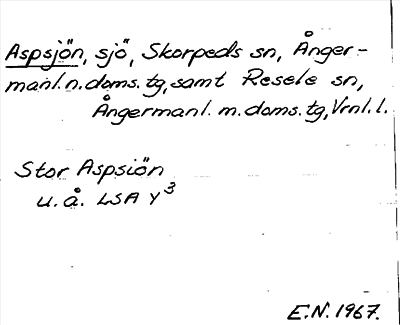 Aspsjön, sjö, Skorpeds sn, Ånger-
manl. n. doms. tg, samt Resele sn,
Ångermanl. m. doms. tg, Vrnl. l.
Stor Aspsiön
u. å. LSA Y³
E.N. 1967.